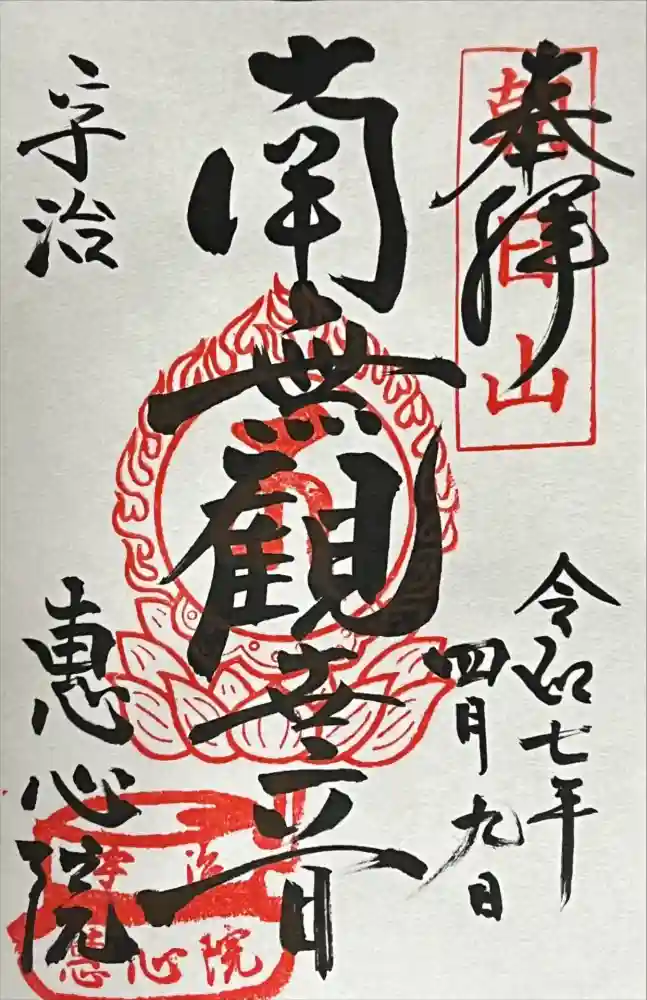 奉拝
朝日山
令和七年
四月九日
南無観世音
宇治
惠心院
宇治
惠心院